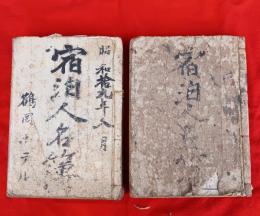 昭和拾九年八月
宿泊人名簿
鶴岡ホテル
宿泊人名